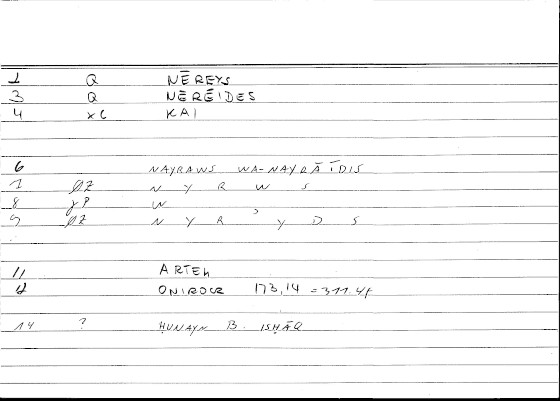 1 Q NĒREYS
3 Q NĒRĒIDES
4 xc KAI
6 NAYRAWS WA-NAYRĀʾĪDIS
7 ØZ N Y R W S
8 yP W
9 ØZ N Y R ʾ Y D S
11 ARTEh
12 ONIROCR 173,14 = 311.4f
14 ? ḤUNAYN B. ISḤĀQ